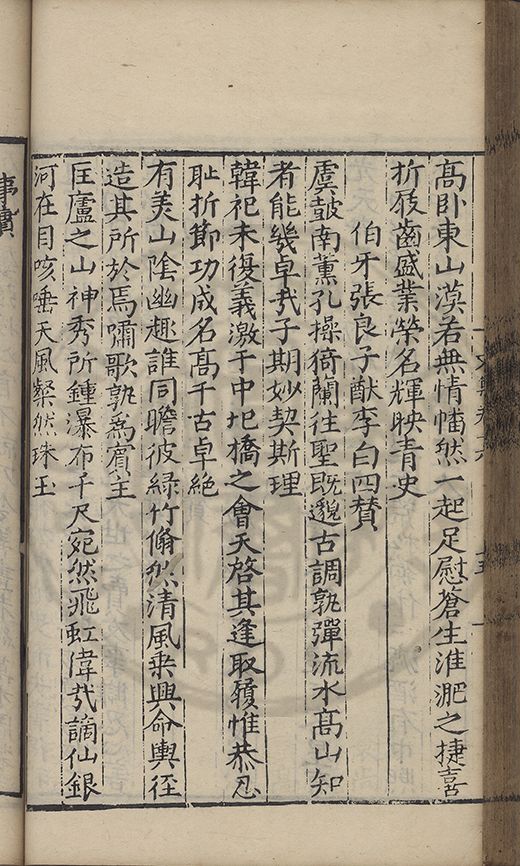 高卧東山漠若無情幡然一起足慰蒼生淮淝之捷喜
折屐齒盛業榮名輝映青史
伯牙張良子猷李白四贊
虞鼓南薰孔操猗蘭往聖旣邈古調孰彈流水高山知
者能幾卓哉子期妙契斯理
韓祀未復義激于中圯橋之會天啓其逢取履惟恭忍
耻折節功成名高千古卓絶
有美山陰幽趣誰同瞻彼綠竹翛然清風乗興命輿徑
造其所於焉嘯歌孰為賓主
匡廬之山神秀所鍾瀑布千尺宛然飛虹偉哉謫仙銀
河在目咳唾天風粲然珠玉